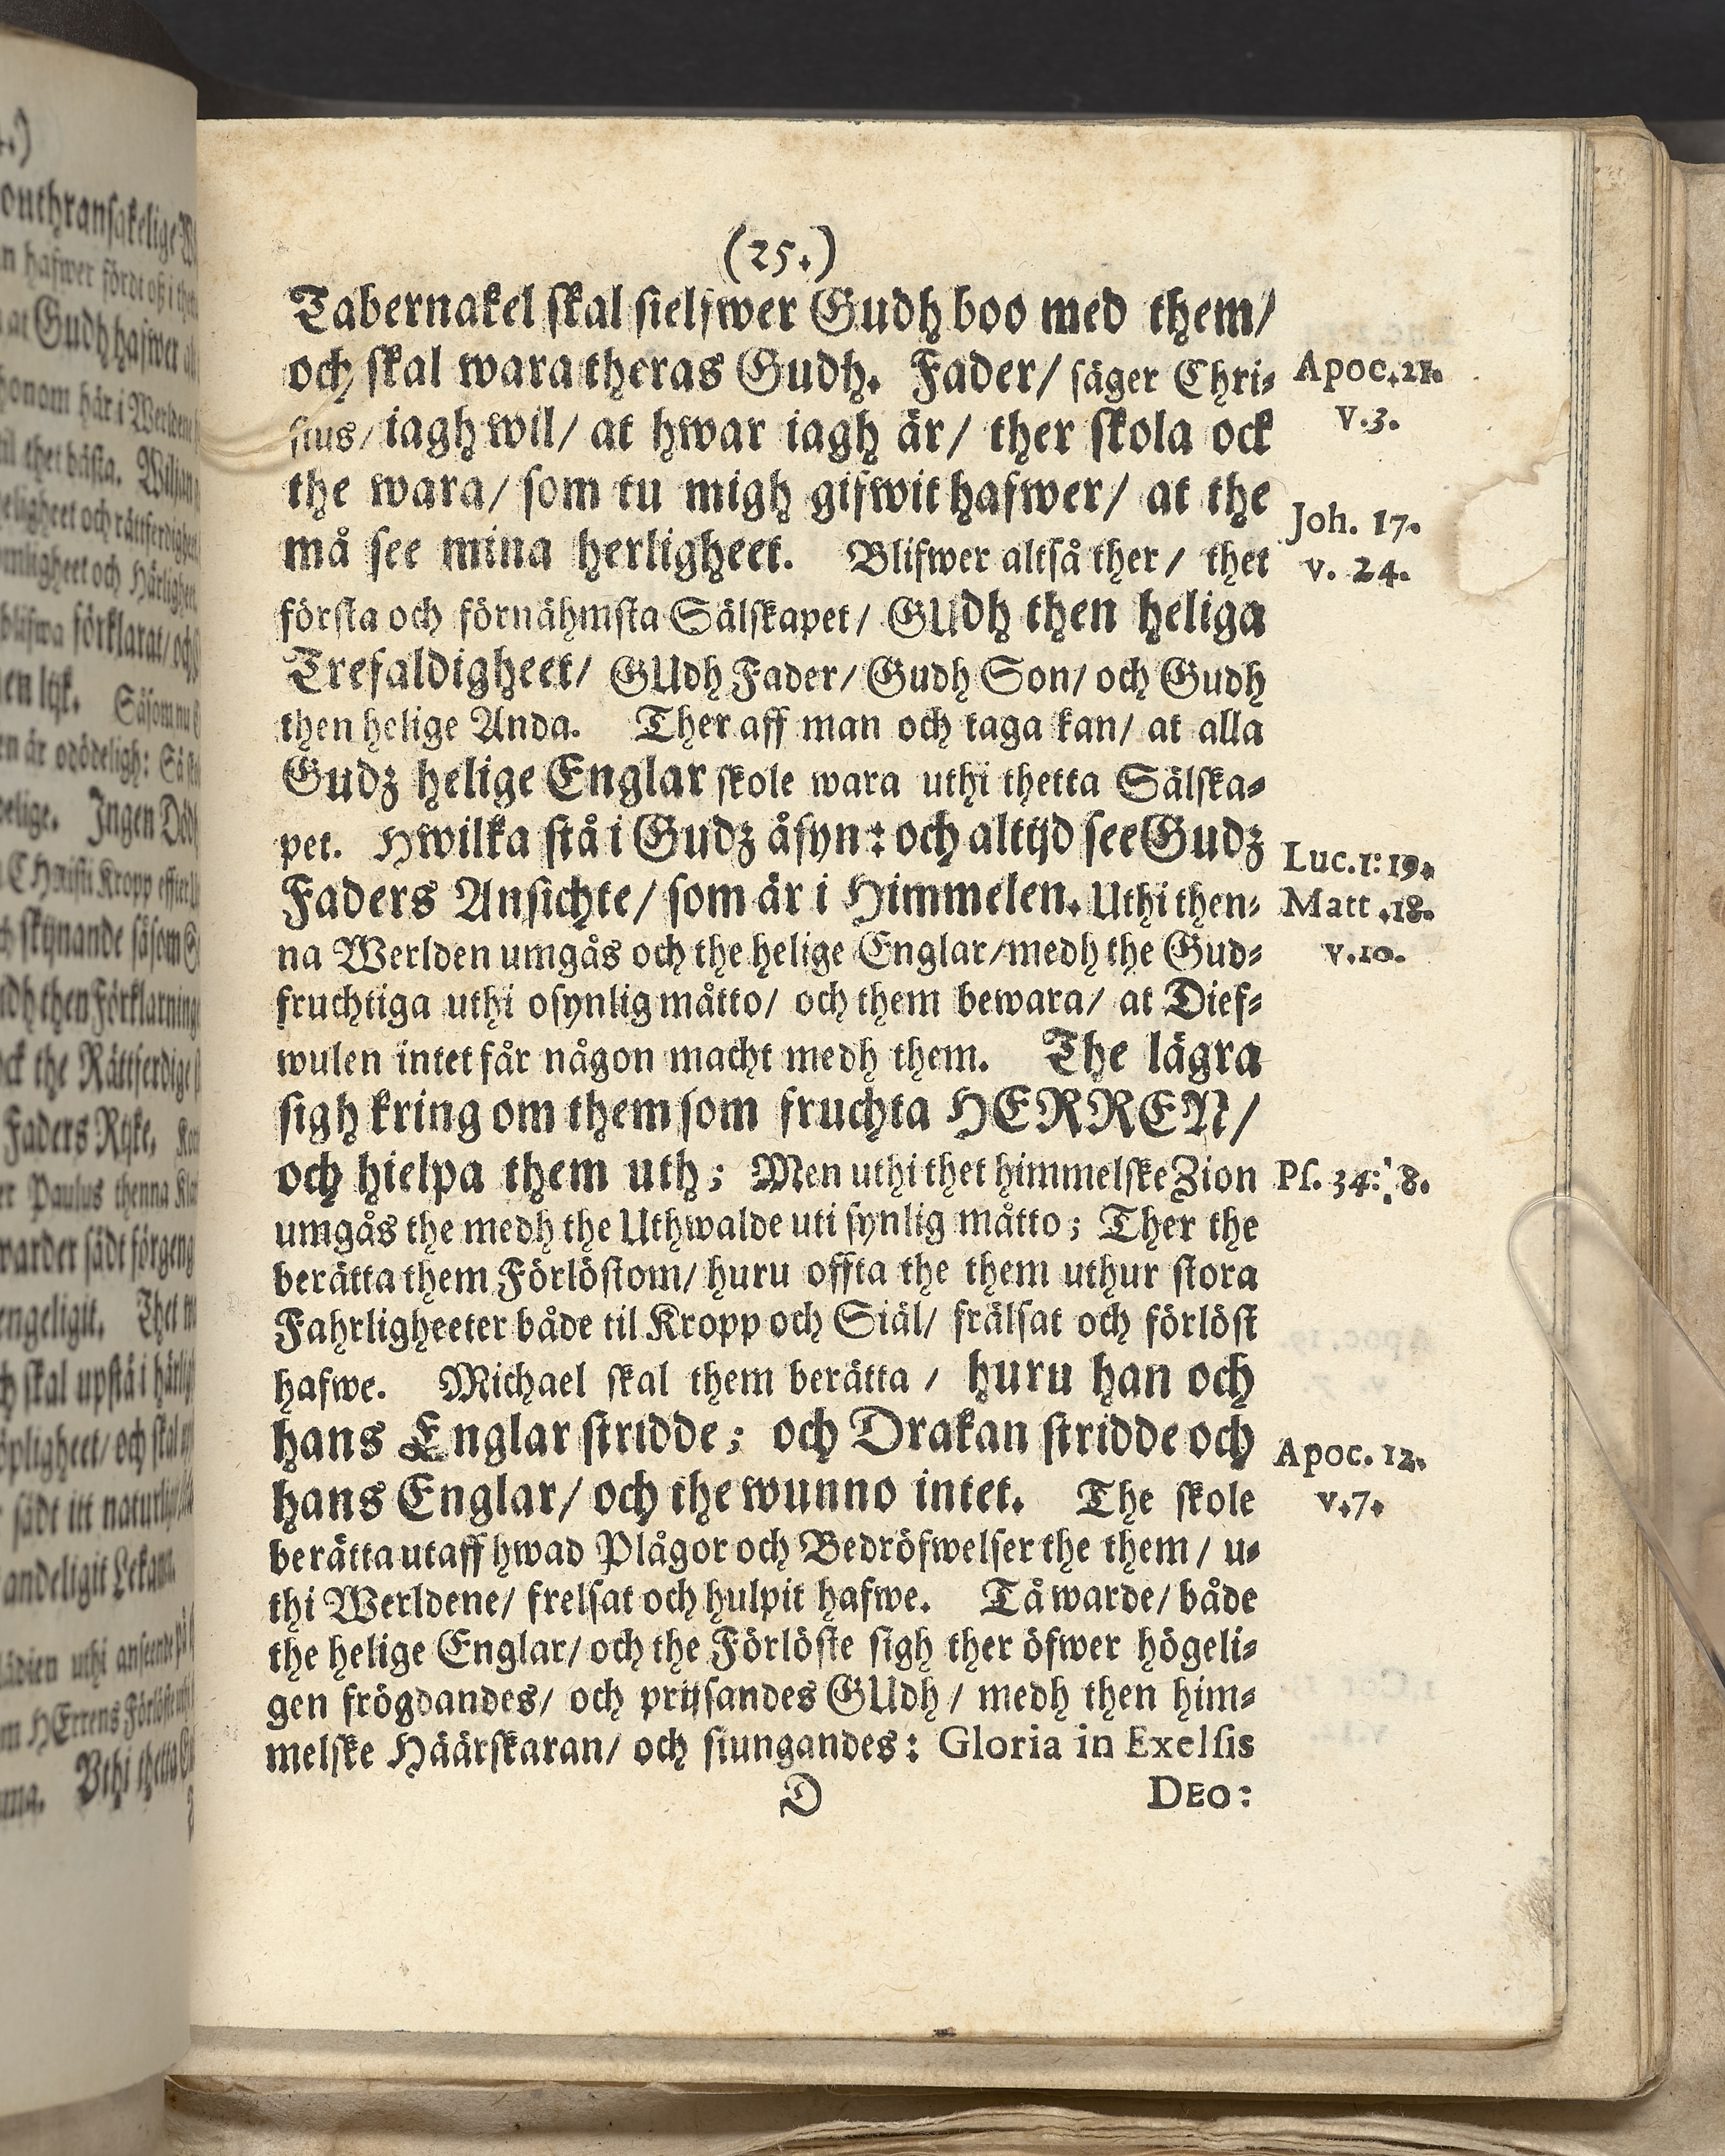 (25.)
Tabernakel skal sielfwer Gudh boo med them/
och skal wara theras Gudh. Fader/ säger Chri-
stus/ iagh wil/ at hwar iagh är/ ther skola ock
the wara/ som tu migh gifwit hafwer/ at the
må see mina herligheet. Blifwer altså ther/ thet
första och förnähmsta Sälskapet/ GUdh then heliga
Trefaldigheet/ GUdh Fader/ Gudh Son/ och Gudh
then helige Anda. Ther aff man och taga kan/ at alla
Gudz helige Englar skole wara uthi thetta Sälska-
pet. Hwilka stå i Gudz åsyn: och altijd see Gudz
Faders Ansichte/ som är i Himmelen. Uthi then-
na Werlden umgås och the helige Englar/ medh the Gud-
fruchtiga uthi osynlig måtto/ och them bewara/ at Dief-
wulen intet får någon macht medh them. The lägra
sigh kring om them som fruchta HERREN/
och hielpa them uth; Men uthi thet himmelske Zion
umgås the medh the Uthwalde uti synlig måtto; Ther the
berätta them Förlöstom/ huru offta the them uthur stora
Fahrligheeter både til Kropp och Siäl/ frälsat och förlöst
hafwe. Michael skal them berätta/ huru han och
hans Englar stridde; och Drakan stridde och
hans Englar/ och the wunno intet. The skole
berätta utaff hwad Plågor och Bedröfwelser the them/ u-
thi Werldene/ frelsat och hulpit hafwe. Tå warde/ både
the helige Englar/ och the Förlöste sigh ther öfwer högeli-
gen frögdandes/ och prijsandes GUdh/ medh then him-
melske Häärskaran/ och siungandes: Gloria in Exelsis
D DEO:
Apoc. 21.
v. 3.
Joh. 17.
v. 24.
Luc. 1: 19.
Matt. 18.
v. 10.
Ps. 34: 8.
Apoc. 12.
v. 7.